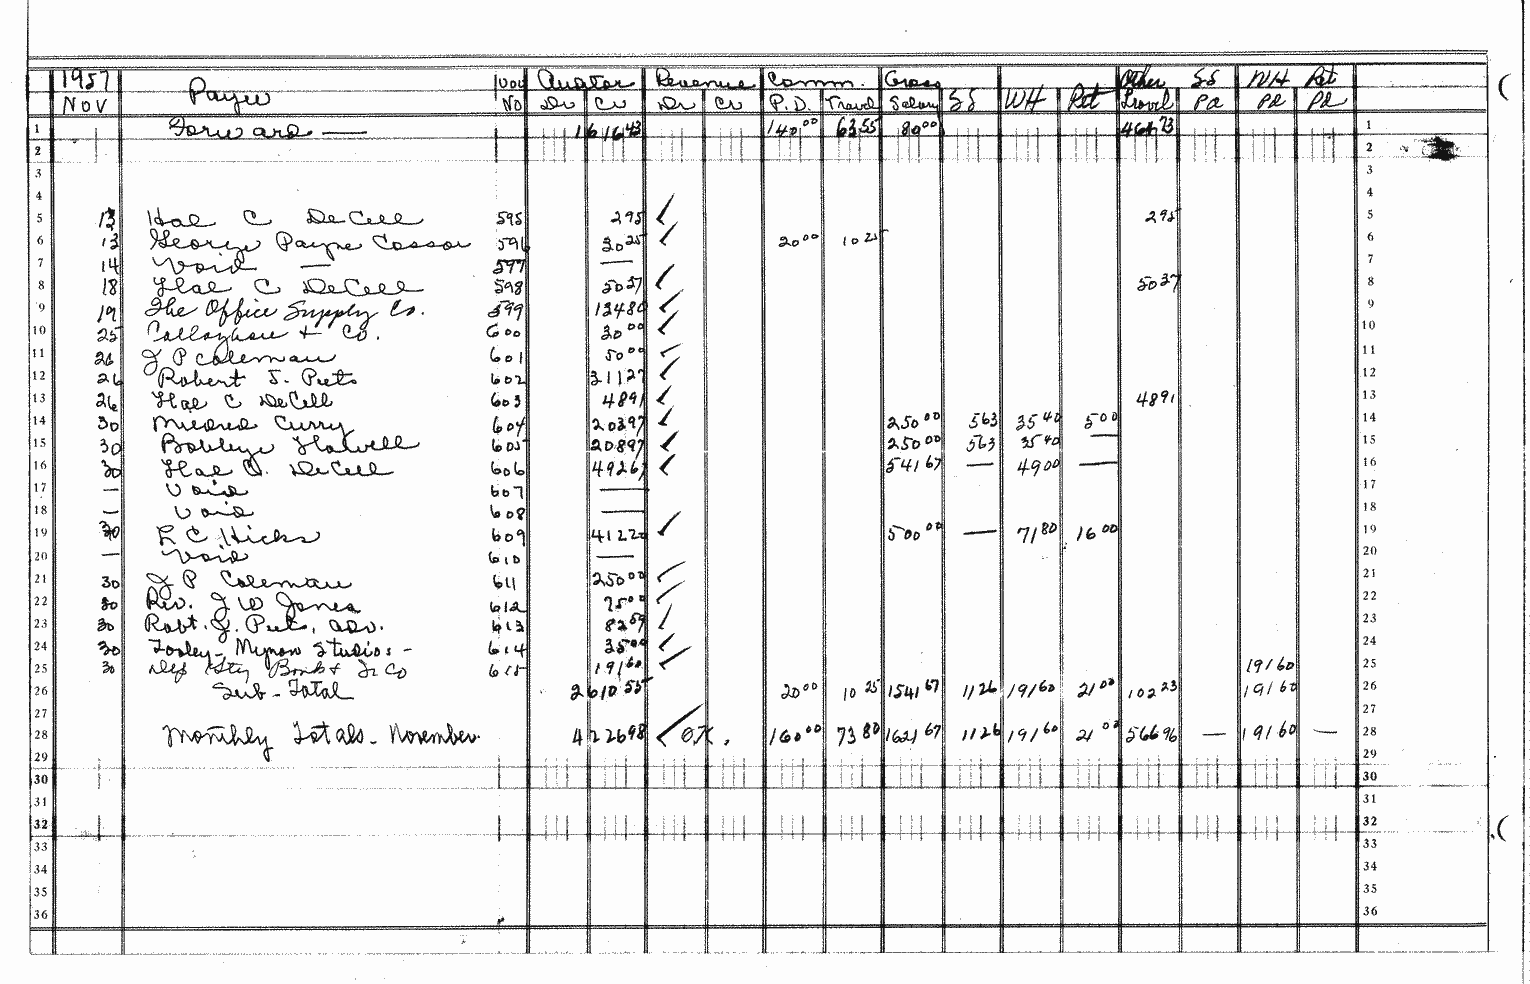 1957 Payee Vou Auditor Revenue Comm. Gross Other SS WH Ret
NOV No Dr Cr Dr Cr P.D. Travel Salary SS WH Ret Travel Pd Pd Pd
1 Forward — 161643 140.00 6355 8000 46473 1
2 2
3 3
4 4
5 13 Hal C DeCell 595 295 ✓ 295 5
6 13 George Payne Cossar 596 3025 ✓ 2000 1025 6
7 14 Void — 597 — 7
8 18 Hal C DeCell 598 5037 ✓ 5037 8
9 19 The Office Supply Co. 599 13480 ✓ 9
10 25 Callaghan + Co. 600 3000 ✓ 10
11 26 J P Coleman 601 5000 ✓ 11
12 26 Robert J. Pitts 602 31127 ✓ 12
13 26 Hal C DeCell 603 4891 ✓ 4891 13
14 30 Mildred Curry 604 20397 ✓ 25000 563 3540 500 14
15 30 Howell 605 20897 ✓ 25000 563 3540 — 15
16 30 Hal C. DeCell 606 49267 ✓ 54167 — 4900 — 16
17 — Void 607 — 17
18 — Void 608 — 18
19 30 L C Hicks 609 41220 ✓ 50000 — 7180 1600 19
20 — Void 610 — 20
21 30 J P Coleman 611 25000 ✓ 21
22 30 Rev. J W Jones 612 7500 ✓ 22
23 30 Robt. J. Pitts, adv. 613 8259 ✓ 23
24 30 Tooley-Myron Studios - 614 3500 ✓ 24
25 30 Dep Gty Bank + Tr Co 615 19160 ✓ 19160 25
26 Sub-Total 261055 2000 1025 154167 1126 19160 2100 10223 19160 26
27 27
28 Monthly Totals - November. 422698 ✓ O.K. 16000 7380 162167 1126 19160 2100 56696 — 19160 — 28
29 29
30 30
31 31
32 32
33 33
34 34
35 35
36 36